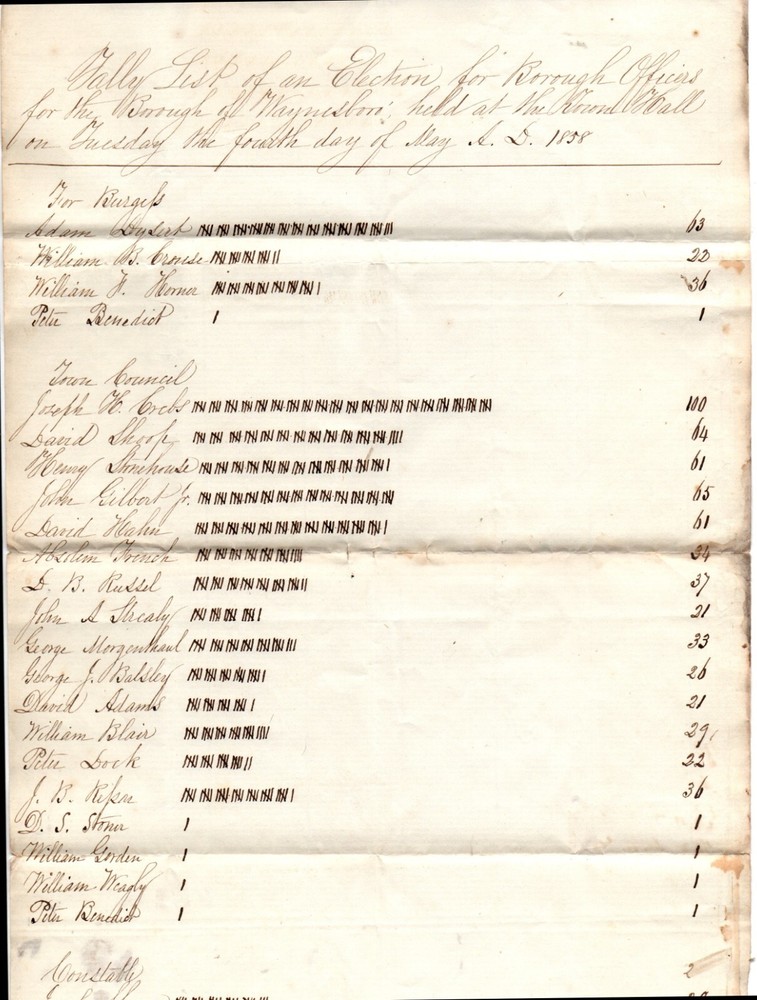 Tally List of an Election for Borough Officers
for the Borough of Waynesboro' held at the Town Hall
on Tuesday the fourth day of May A. D. 1858
For Burgess
Adam 63
William B. Crouse 22
William H. Horner 36
Peter Benedict 1
Town Council
Joseph H. Crebs 100
David Shoop 64
Henry Stonehouse 61
John Gilbert Jr. 65
David Hahn 61
Absolem French 34
D. B. Russel 37
John A Strealy 21
George Morgenthaul 33
George J. Balsley 26
David Adams 21
William Blair 29
Peter Dock 22
J. B. 36
D. S. Stoner 1
William Gorden 1
William Weagly 1
Peter Benedict 1
Constable 2